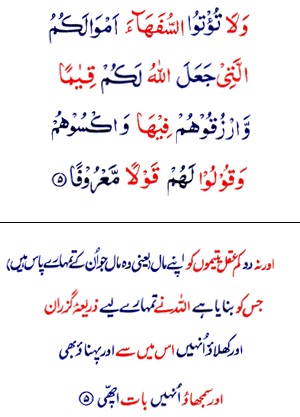 وَلَا تُؤْتُوا السُّفَهَآءَ اَمْوَالَكُمُ
الَّتِیْ جَعَلَ اللّٰهُ لَكُمْ قِیٰمًا
وَّارْزُقُوْهُمْ فِیْهَا وَاكْسُوْهُمْ
وَقُوْلُوْا لَهُمْ قَوْلًا مَّعْرُوْفًا ۵
اور نہ دو کم عقل یتیموں کو اپنے مال (یعنی وہ مال جو اُن کے تمہارے پاس ہیں)
جس کو بنایا ہے اللہ نے تمہارے لیے ذریعۂ گزران
اور کھلاؤ اُنہیں اس میں سے اور پہناؤ بھی
اور سمجھاؤ اُنہیں بات اچھّی ۵